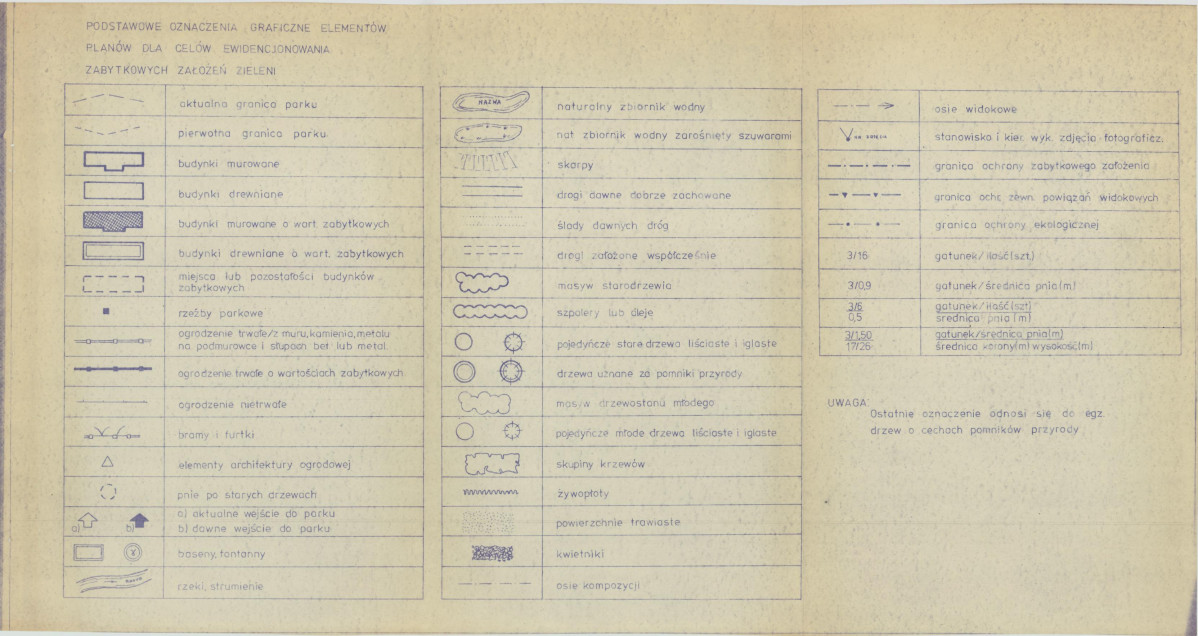 PODSTAWOWE OZNACZENIA GRAFICZNE ELEMENTÓW
PLANÓW DLA CELÓW EWIDENCJONOWANIA
ZABYTKOWYCH ZAŁOŻEŃ ZIELENI
aktualna granica parku
pierwotna granica parku
budynki murowane
budynki drewniane
budynki murowane o wart. zabytkowych
budynki drewniane o wart. zabytkowych
miejsca lub pozostałości budynków
zabytkowych
rzeźby parkowe
ogrodzenie trwałe/z muru, kamienia, metalu
na podmurówce i słupach bet. lub metal.
ogrodzenie trwałe o wartościach zabytkowych
ogrodzenie nietrwałe
bramy i furtki
elementy architektury ogrodowej
pnie po starych drzewach
a) b)
a) aktualne wejście do parku
b) dawne wejście do parku
baseny, fontanny
rzeki, strumienie
NAZWA
naturalny zbiornik wodny
nat zbiornik wodny zarośnięty szuwarami
skarpy
drogi dawne dobrze zachowane
ślady dawnych dróg
drogi założone współcześnie
masyw starodrzewia
szpalery lub aleje
pojedyńcze stare drzewa liściaste i iglaste
drzewa uznane za pomniki przyrody
masyw drzewostanu młodego
pojedyńcze młode drzewa liściaste i iglaste
skupiny krzewów
żywopłoty
powierzchnie trawiaste
kwietniki
osie kompozycji
osie widokowe
stanowisko i kier. wyk. zdjęcia fotograficz.
granica ochrony zabytkowego założenia
granica ochr. zewn. powiązań widokowych
granica ochrony ekologicznej
3/16 gatunek/ilość (szt.)
3/0,9 gatunek/średnica pnia (m)
3/6 gatunek/ilość (szt)
0,5 średnica pnia (m)
3/1,50 gatunek/średnica pnia (m)
17/26 średnica korony (m) wysokość (m)
UWAGA:
Ostatnie oznaczenie odnosi się do egz.
drzew o cechach pomników przyrody